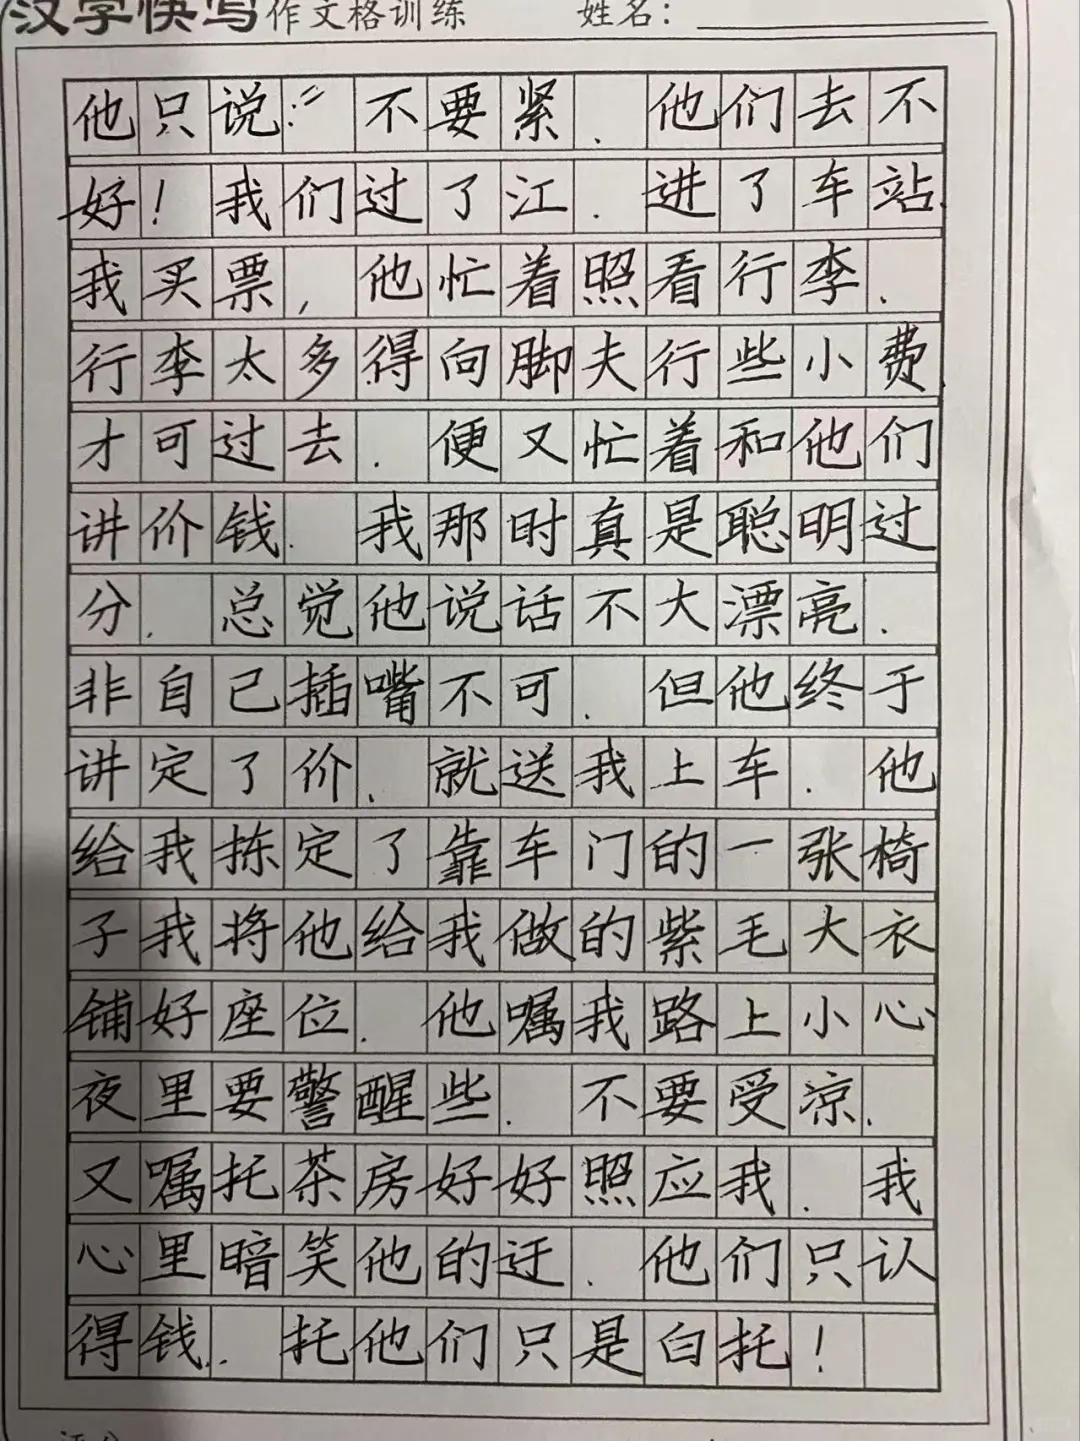 汉字快写作文格训练 姓名:
他只说:“不要紧.他们去不
好!我们过了江.进了车站.
我买票,他忙着照看行李.
行李太多.得向脚夫行些小费
才可过去.便又忙着和他们
讲价钱.我那时真是聪明过
分.总觉他说话不大漂亮.
非自己插嘴不可.但他终于
讲定了价.就送我上车.他
给我拣定了靠车门的一张椅
子我将他给我做的紫毛大衣
铺好座位.他嘱我路上小心
夜里要警醒些.不要受凉.
又嘱托茶房好好照应我.我
心里暗笑他的迂.他们只认
得钱..托他们只是白托!